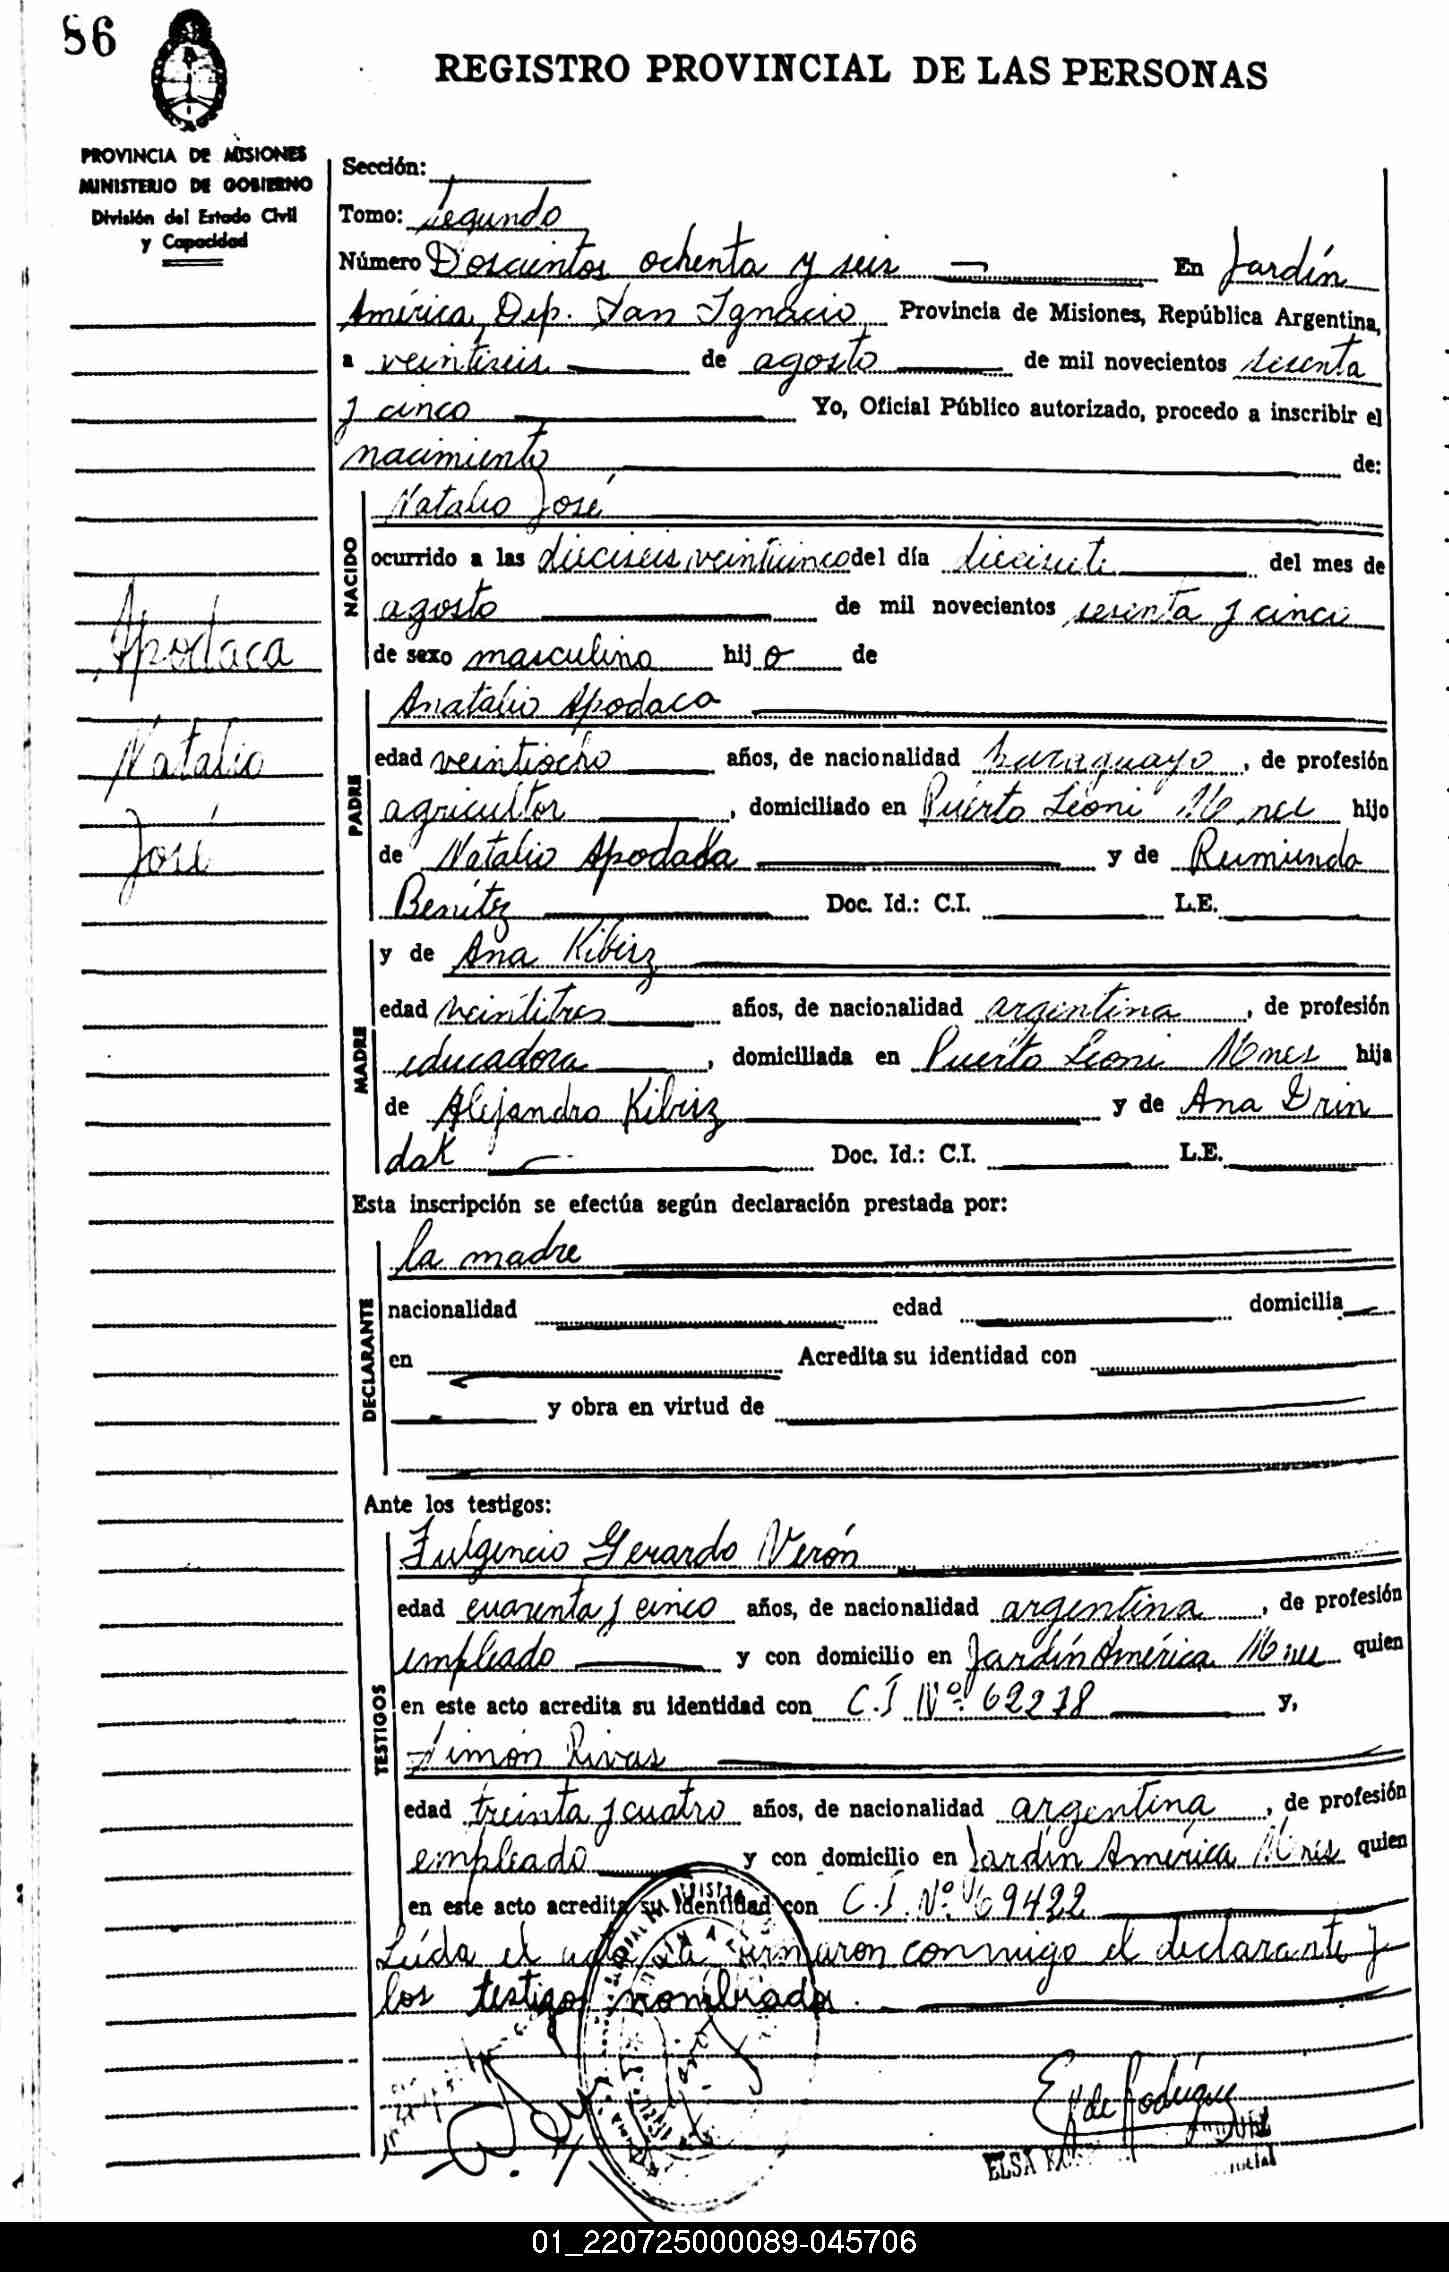 86
REGISTRO PROVINCIAL DE LAS PERSONAS
PROVINCIA DE MISIONES
MINISTERIO DE GOBIERNO
División del Estado Civil
y Capacidad
Sección:
Tomo: Segundo
Número Doscientos ochenta y seis En Jardín
América, Dep. San Ignacio Provincia de Misiones, República Argentina,
a veintiseis de agosto de mil novecientos sesenta
y cinco Yo, Oficial Público autorizado, procedo a inscribir el
nacimiento de:
NACIDO
Natalio José
ocurrido a las dieciseis, veinticinco del día diecisiete del mes de
agosto de mil novecientos sesenta y cinco
de sexo masculino hij o de
Apodaca
Natalio
José
PADRE
Anatalio Apodaca
edad veintiocho años, de nacionalidad paraguayo, de profesión
agricultor, domiciliado en Puerto Leoni Mnes hijo
de Natalio Apodada y de Reimunda
Benítez Doc. Id.: C.I. L.E.
MADRE
y de Ana Kibisz
edad veintitres años, de nacionalidad argentina, de profesión
educadora, domiciliada en Puerto Leoni Mnes hija
de Alejandro Kibisz y de Ana Drin
dak Doc. Id.: C.I. L.E.
Esta inscripción se efectúa según declaración prestada por:
DECLARANTE
la madre
nacionalidad edad domicilia
en Acredita su identidad con
y obra en virtud de
Ante los testigos:
TESTIGOS
Fulgencio Gerardo Verón
edad cuarenta y cinco años, de nacionalidad argentina, de profesión
empleado y con domicilio en Jardín América Mnes quien
en este acto acredita su identidad con C.I Nº 62278 y,
Simón Rivas
edad treinta y cuatro años, de nacionalidad argentina, de profesión
empleado y con domicilio en Jardín América Mnes quien
en este acto acredita su identidad con C.I. Nº 69422
Leída el acta la firmaron conmigo el declarante y
los testigos nombrados.
E. de Rodríguez
ELSA
01_220725000089-045706